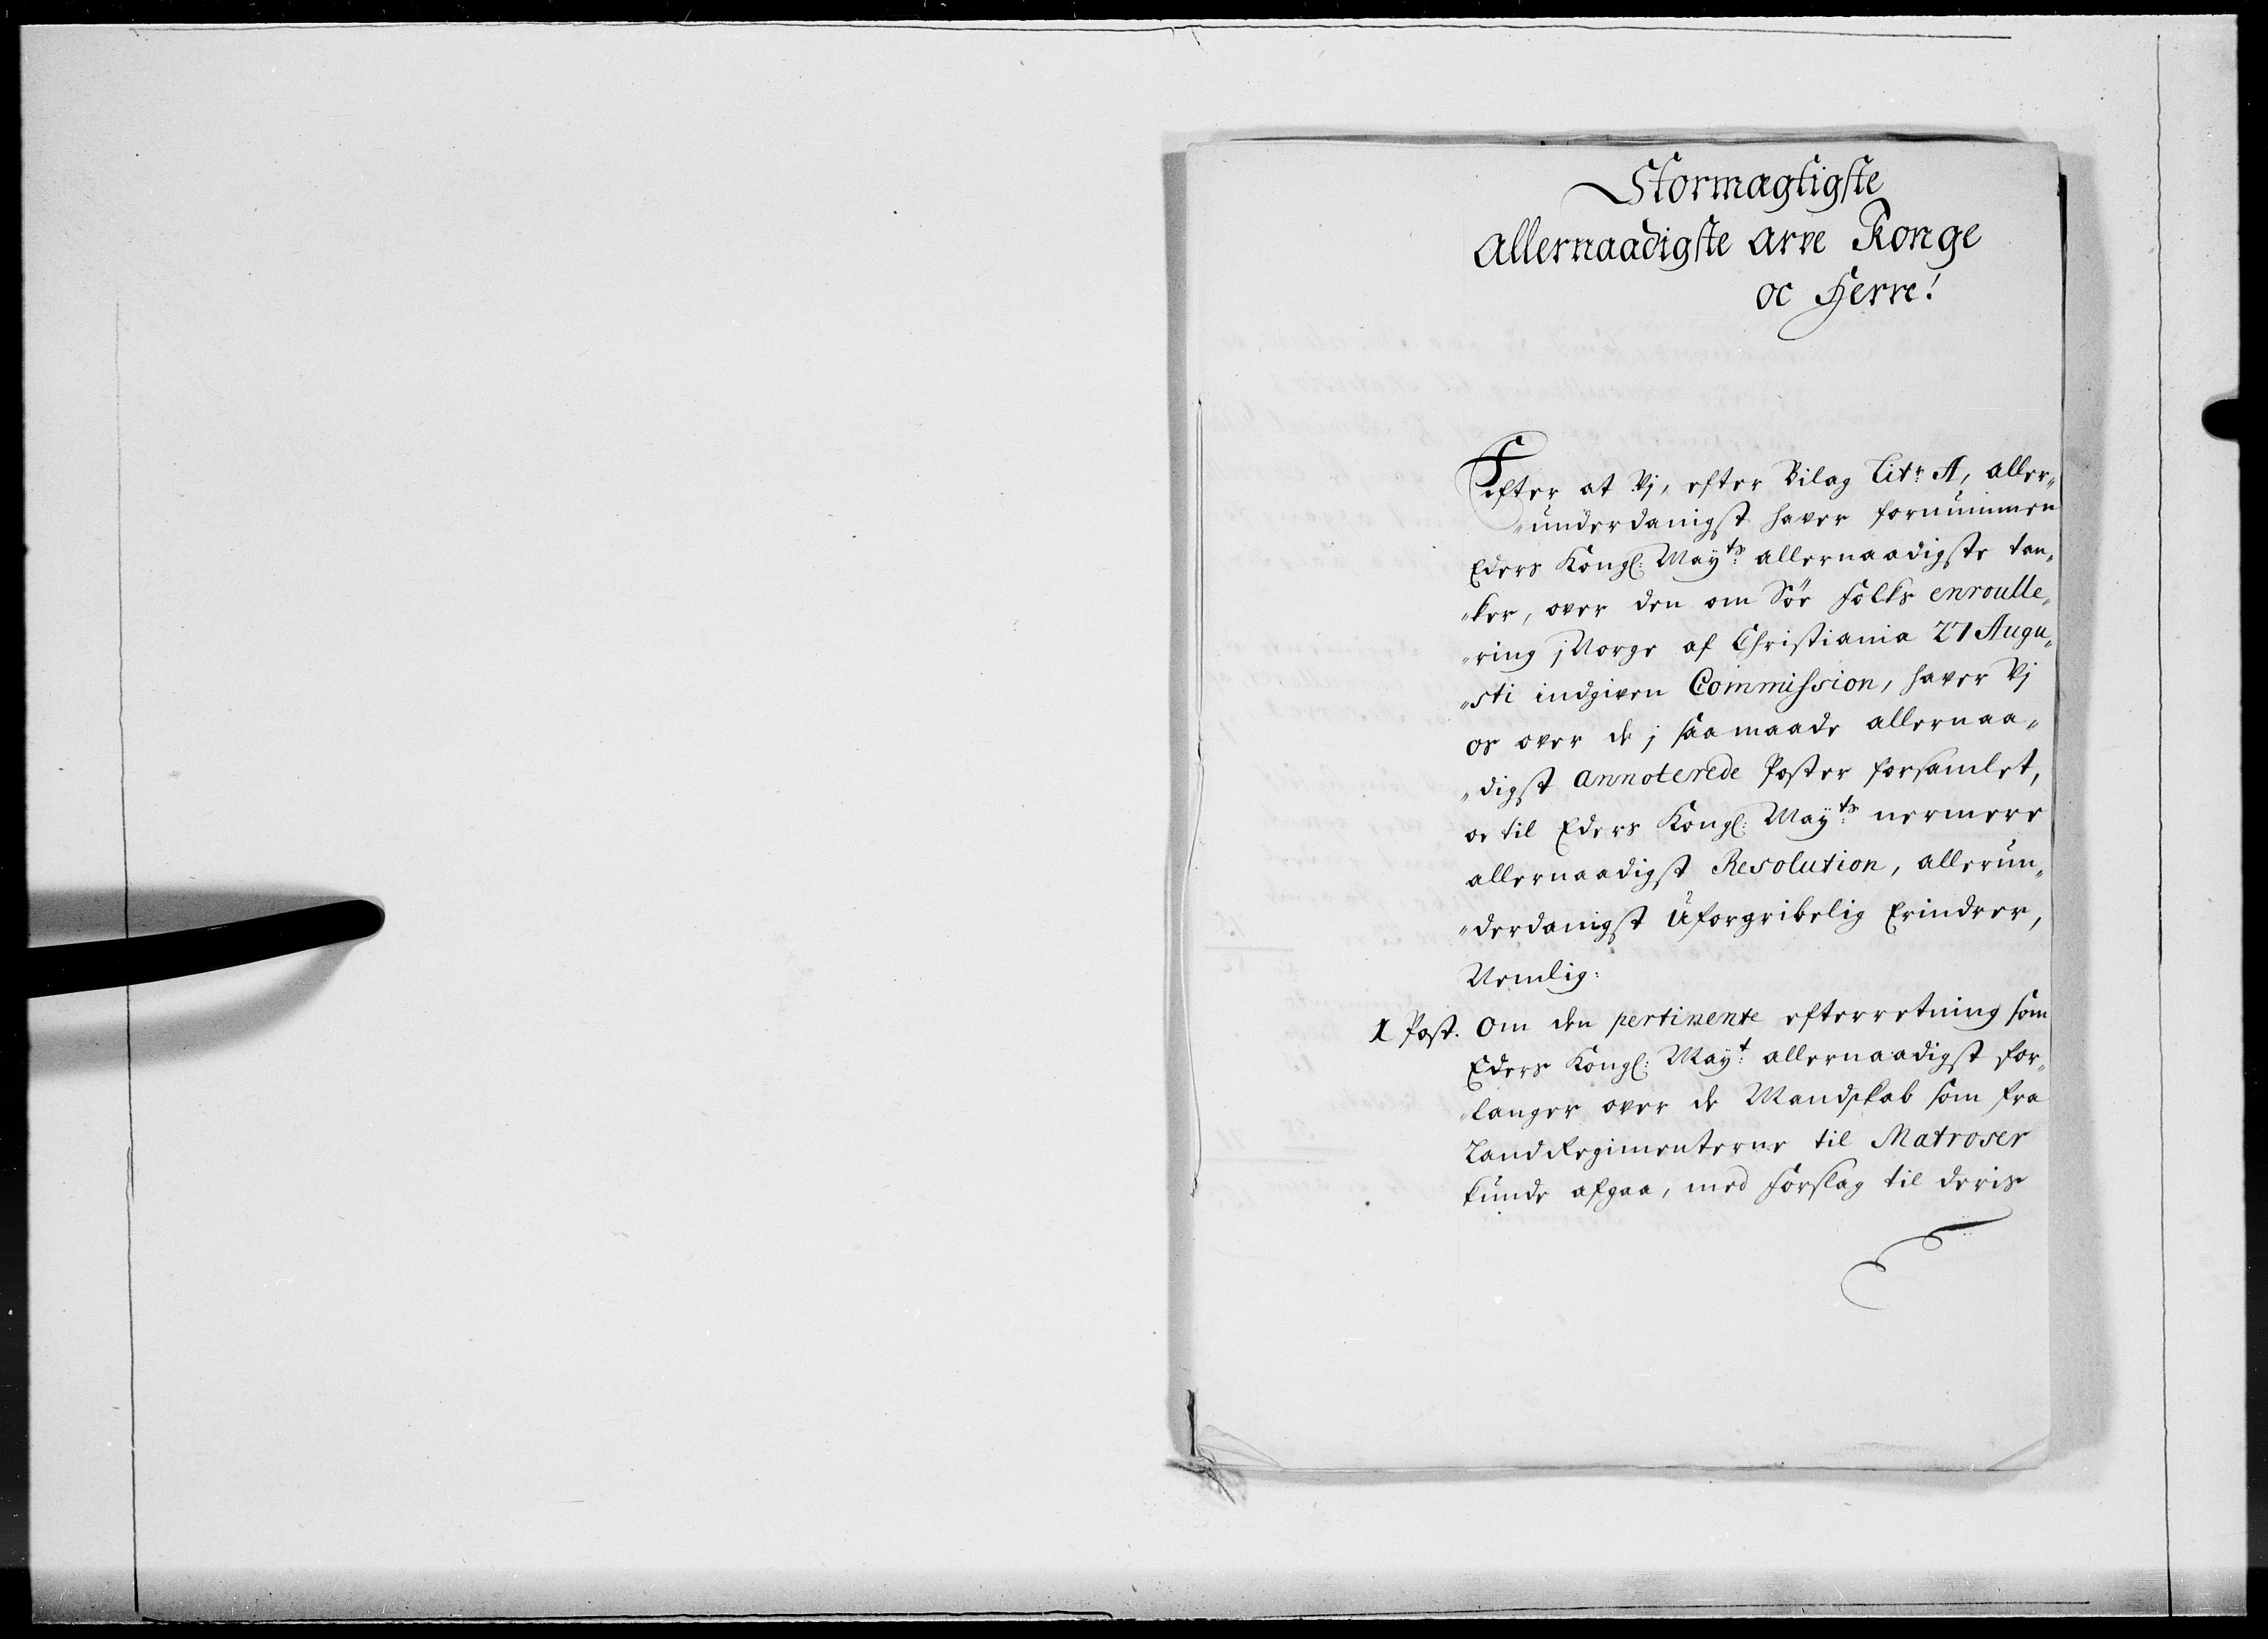 Stormagtigste
Allernaadigste Arve Konge
oc Herre!
Efter at Vj, efter Bilag Litr: A, aller„
„underdanigst haver fornummen
Eders Kongl: Mayts: allernaadigste tan„
„ker, over den om Söe Folks enroulle„
„ring j Norge af Christiania 27 Augu„
„sti indgiven Commission, haver Vj
os over de j saa maade allernaa„
„digst annoterede Poster forsamlet,
oc til Eders Kongl: Mayts: nermere
allernaadigst Resolution, allerun„
„derdanigst Uforgribelig Erindrer,
Nemlig:
1 Post. Om den pertinente efterretning som
Eders Kongl: Mayt: allernaadigst for„
„langer over de Mandskab som fra
Land Regimenterne til Matroser
kunde afgaa, med Forslag til deris